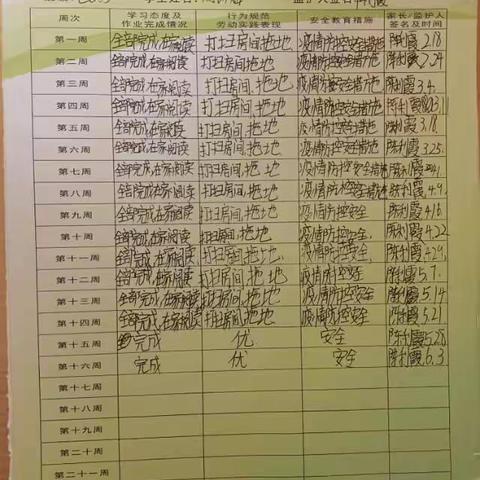 周次 学习态度及作业完成情况 行为规范劳动实践表现 安全教育措施 家长/监护人签名及时间
第一周 全部完成,在家阅读 打扫房间,拖地 疫情防控安全措施 陈利霞 2.18
第二周 全部完成,在家阅读 打扫房间,拖地 疫情防控安全措施 陈利霞 2.24
第三周 全部完成,在家阅读 打扫房间,拖地 疫情防控安全措施 陈利霞 3.4
第四周 全部完成,在家阅读 打扫房间,拖地 疫情防控安全措施 陈利霞 3.11
第五周 全部完成,在家阅读 打扫房间,拖地 疫情防控安全措施 陈利霞 3.18
第六周 全部完成,在家阅读 打扫房间,拖地 疫情防控安全措施 陈利霞 3.25
第七周 全部完成,在家阅读 打扫房间,拖地 疫情防控安全措施 陈利霞
第八周 全部完成,在家阅读 打扫房间,拖地 疫情防控安全措施 陈利霞 4.9
第九周 全部完成,在家阅读 打扫房间,拖地 疫情防控安全 陈利霞 4.16
第十周 全部完成,在家阅读 打扫房间,拖地 疫情防控安全, 陈利霞 4.22
第十一周 全部完成,在家阅读 打扫房间,拖地 疫情防控安全, 陈利霞 4.29
第十二周 全部完成,在家阅读 打扫房间,拖地 疫情防控安全 陈利霞 5.7
第十三周 全部完成,在家阅读 打扫房间,拖地 疫情防控安全 陈利霞 5.14
第十四周 全部完成,在家阅读 打扫房间,拖地 疫情防控安全 陈利霞 5.21
第十五周 完成 优 安全 陈利霞 5.28
第十六周 完成 优 安全 陈利霞 6.3
第十七周
第十八周
第十九周
第二十周
第二十一周